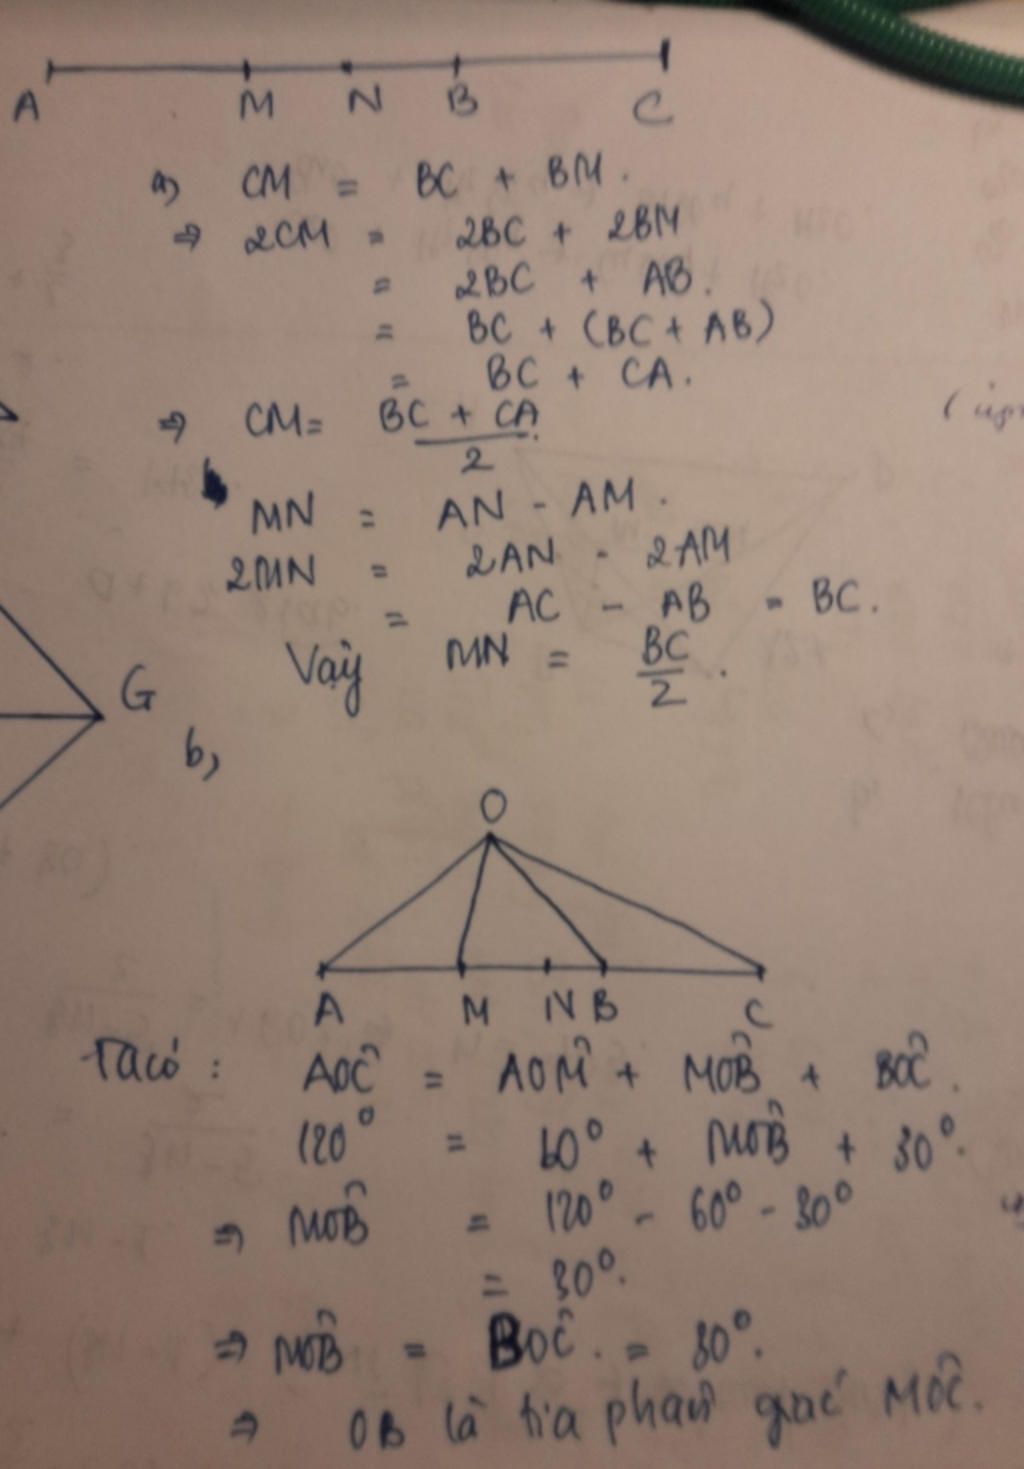 A M N B C
a) CM = BC + BM.
⇒ 2CM = 2BC + 2BM
= 2BC + AB.
= BC + (BC + AB)
= BC + CA.
⇒ CM = \frac{BC + CA}{2}.
MN = AN - AM.
2MN = 2AN - 2AM
= AC - AB = BC.
Vậy MN = \frac{BC}{2}.
G
b,
O
A M N B C
Ta có : AOĈ = AOM̂ + MOB̂ + BOĈ.
120° = 60° + MOB̂ + 30°.
⇒ MOB̂ = 120° - 60° - 30°
= 30°.
⇒ MOB̂ = BOĈ. = 30°.
⇒ OB là tia phân giác MOĈ.